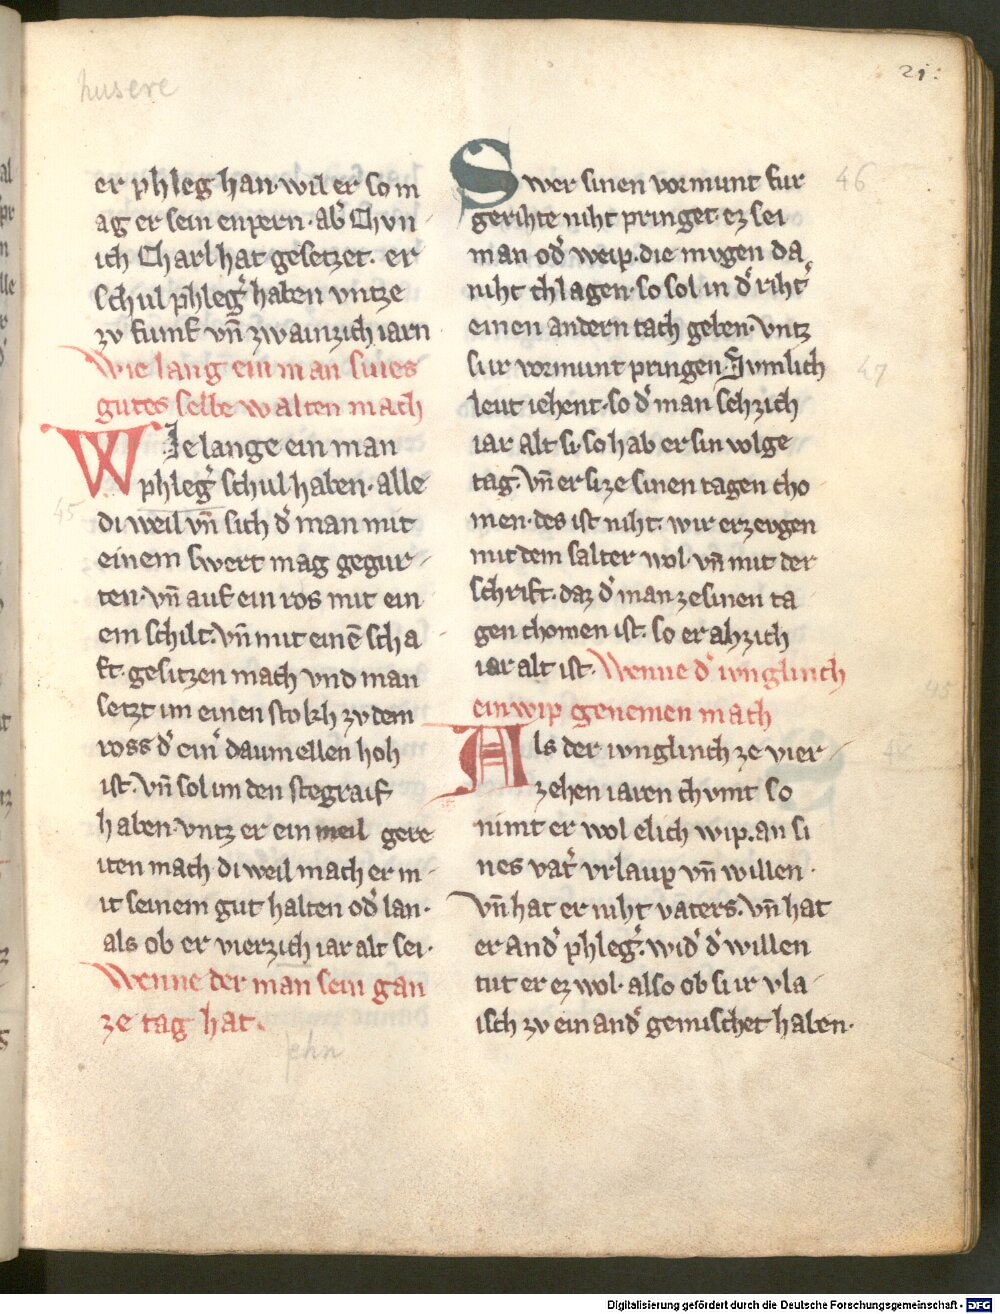 husere
21:
er phleg han·wil er so m
ag er sein enpern·ab̾ Chvn
ich Charl hat gesetzet. er
schul phleg̾ haben vntze
zv funf vn̄ zwainzich iarn
Wie lang ein man sines
gutes selbe walten mach
WJe lange ein man
phleg̾ schul haben·alle
di weil vn̄ sich d̾ man mit
einem swert mag gegur
ten·vn̄ auf ein ros mit ein
em schilt·vn̄ mit einē scha
ft·gesitzen mach vnd man
setzt im einen stokh zv dem
ross d̾ ein̾ daumellen hoh
ist·vn̄ sol im den stegraif
haben·vntz er ein meil gere
iten mach di weil mach er m
it seinem gut halten od̾ lan·
als ob er vierzich iar alt sei·
Wenne der man sein gan
ze tag hat.
ehn
45
Swer sinen vormunt fur
gerihte niht pringet·ez sei
man od̾ weip.die mvgen da
niht chlagen·so sol in d̾ riht̾
einen andern tach geben·vntz
si ir vormunt pringen·Svmlich
leut iehent·so d̾ man sehzich
iar alt si·so hab er sin volge
tag·vn̄ er size sinen tagen cho
men·des ist niht·wir erzevgen
mit dem salter wol·vn̄ mit der
schrift·daz d̾ man ze sinen ta
gen chomen ist·so er ahzich
iar alt ist·Wenne d̾ ivnglinch
ein wip genemen mach
Als der ivnglinch ze vier
zehen iaren chvmt so
nimt er wol elich wip.an si
nes vat̾ vrlaup vn̄ willen·
vn̄ hat er niht vaters·vn̄ hat
er and̾ phleg̾·wid̾ d̾ willen
tut er ez wol·also ob si ir vla
isch zv ein and̾ gemischet haben·
46
47
45
Digitalisierung gefördert durch die Deutsche Forschungsgemeinschaft - DFG